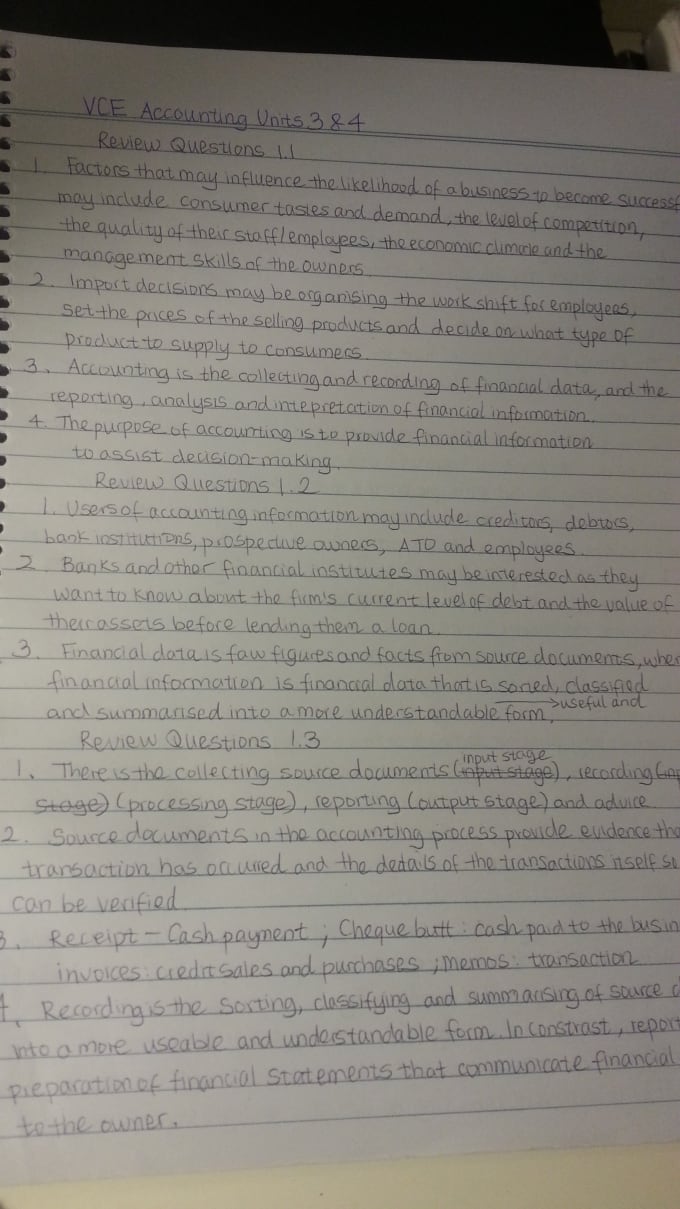 VCE Accounting Units 3 & 4
Review Questions 1.1
1. Factors that may influence the likelihood of a business to become success
may include consumer tastes and demand, the level of competition,
the quality of their staff/employees, the economic climate and the
management skills of the owners.
2. Import decisions may be organising the work shift for employees,
set the prices of the selling products and decide on what type of
product to supply to consumers.
3. Accounting is the collecting and recording of financial data, and the
reporting, analysis and intepretation of financial information.
4. The purpose of accounting is to provide financial information
to assist decision-making.
Review Questions 1.2
1. Users of accounting information may include creditors, debtors,
bank institutions, prospective owners, ATO and employees.
2. Banks and other financial institutes may be interested as they
want to know about the firm's current level of debt and the value of
their assets before lending them a loan.
3. Financial data is faw figures and facts from source documents, wher
financial information is financial data that is sorted, classified
and summarised into a more understandable form, useful and
Review Questions 1.3
input stage
1. There is the collecting source documents (input stage), recording (inp
stage) (processing stage), reporting (output stage) and advice
2. Source documents in the accounting process provide evidence tha
transaction has occurred and the details of the transactions itself so
can be verified
3. Receipt - Cash payment ; Cheque butt : cash paid to the busin
invoices : credit sales and purchases ; memos : transaction
4. Recording is the sorting, classifying and summarising of source d
into a more useable and understandable form. In constrast, report
preparation of financial statements that communicate financial
to the owner.